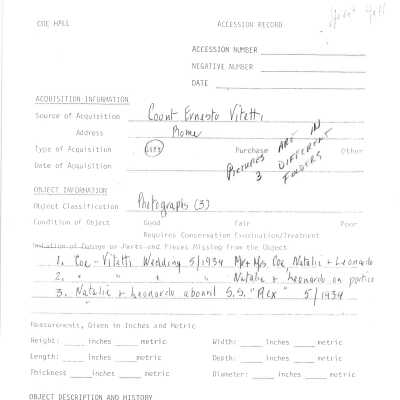 COE HALL ACCESSION RECORD
ACCESSION NUMBER
NEGATIVE NUMBER
DATE
ACQUISITION INFORMATION
Source of Acquisition Count Ernesto Vitetti
Address Rome
Type of Acquisition Gift Purchase Other
PICTURES ARE IN
3 DIFFERENT
FOLDERS
Date of Acquisition
OBJECT INFORMATION
Object Classification Photographs (3)
Condition of Object Good Fair Poor
Requires Conservation Examination/Treatment
Notation of Damage or Parts and Pieces Missing from the Object
1. Coe - Vitetti Wedding 5/1934 Mr + Mrs Coe, Natalie + Leonardo
2. " " " " Natalie + Leonardo on portico
3. Natalie + Leonardo aboard S.S. "Rex" 5/1934
Measurements, Given in Inches and Metric
Height: inches metric Width: inches metric
Length: inches metric Depth: inches metric
Thickness inches metric Diameter: inches metric
OBJECT DESCRIPTION AND HISTORY